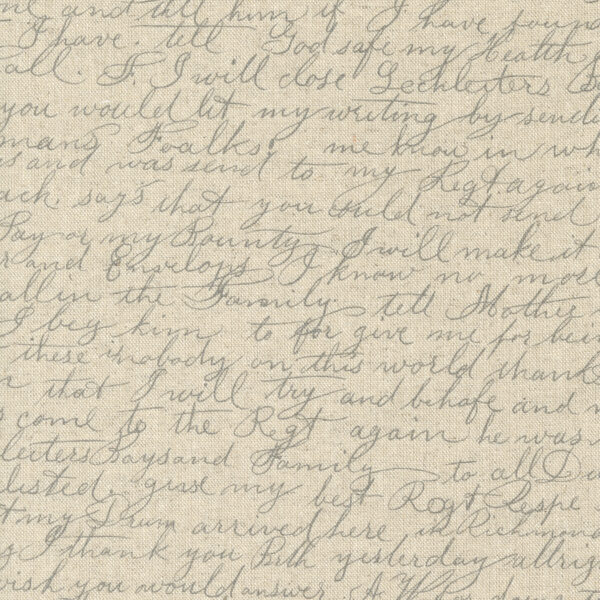 and tell him if I have found
I have. tell God safe my Health
all. F. I will close Lechleiters
you would let my writing by sendi
mans Foalks. me know in wh
s and was send to my Regt. again
ack. says that you could not send
Pay or my Bounty. I will make it
r and Envelops I know no more
all in the Family. tell Mother
I beg him to for give me for bein
these is nobody on this world thank
that I will try and behafe and
come to the Regt again he was
leiters Says and Family to all
listed. give my best Regt Respe
t my Drum arrived here in Richmond
I thank you Both yesterday allrig
wish you would answer